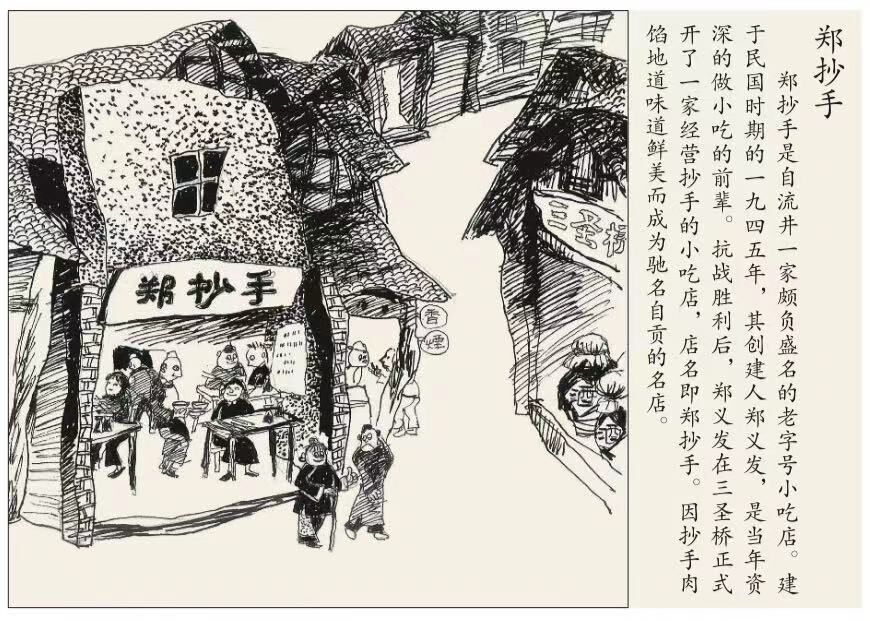 郑抄手
郑抄手是自流井一家颇负盛名的老字号小吃店。建
于民国时期的一九四五年，其创建人郑义发，是当年资
深的做小吃的前辈。抗战胜利后，郑义发在三圣桥正式
开了一家经营抄手的小吃店，店名即郑抄手。因抄手肉
馅地道味道鲜美而成为驰名自贡的名店。
郑抄手
香烟
三圣桥
酒
酒